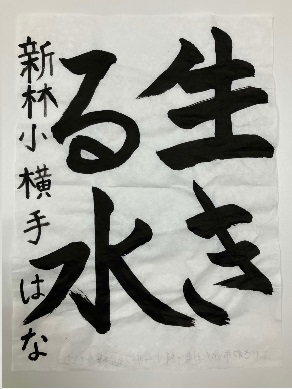 生き
る水
新林小 横手 はな